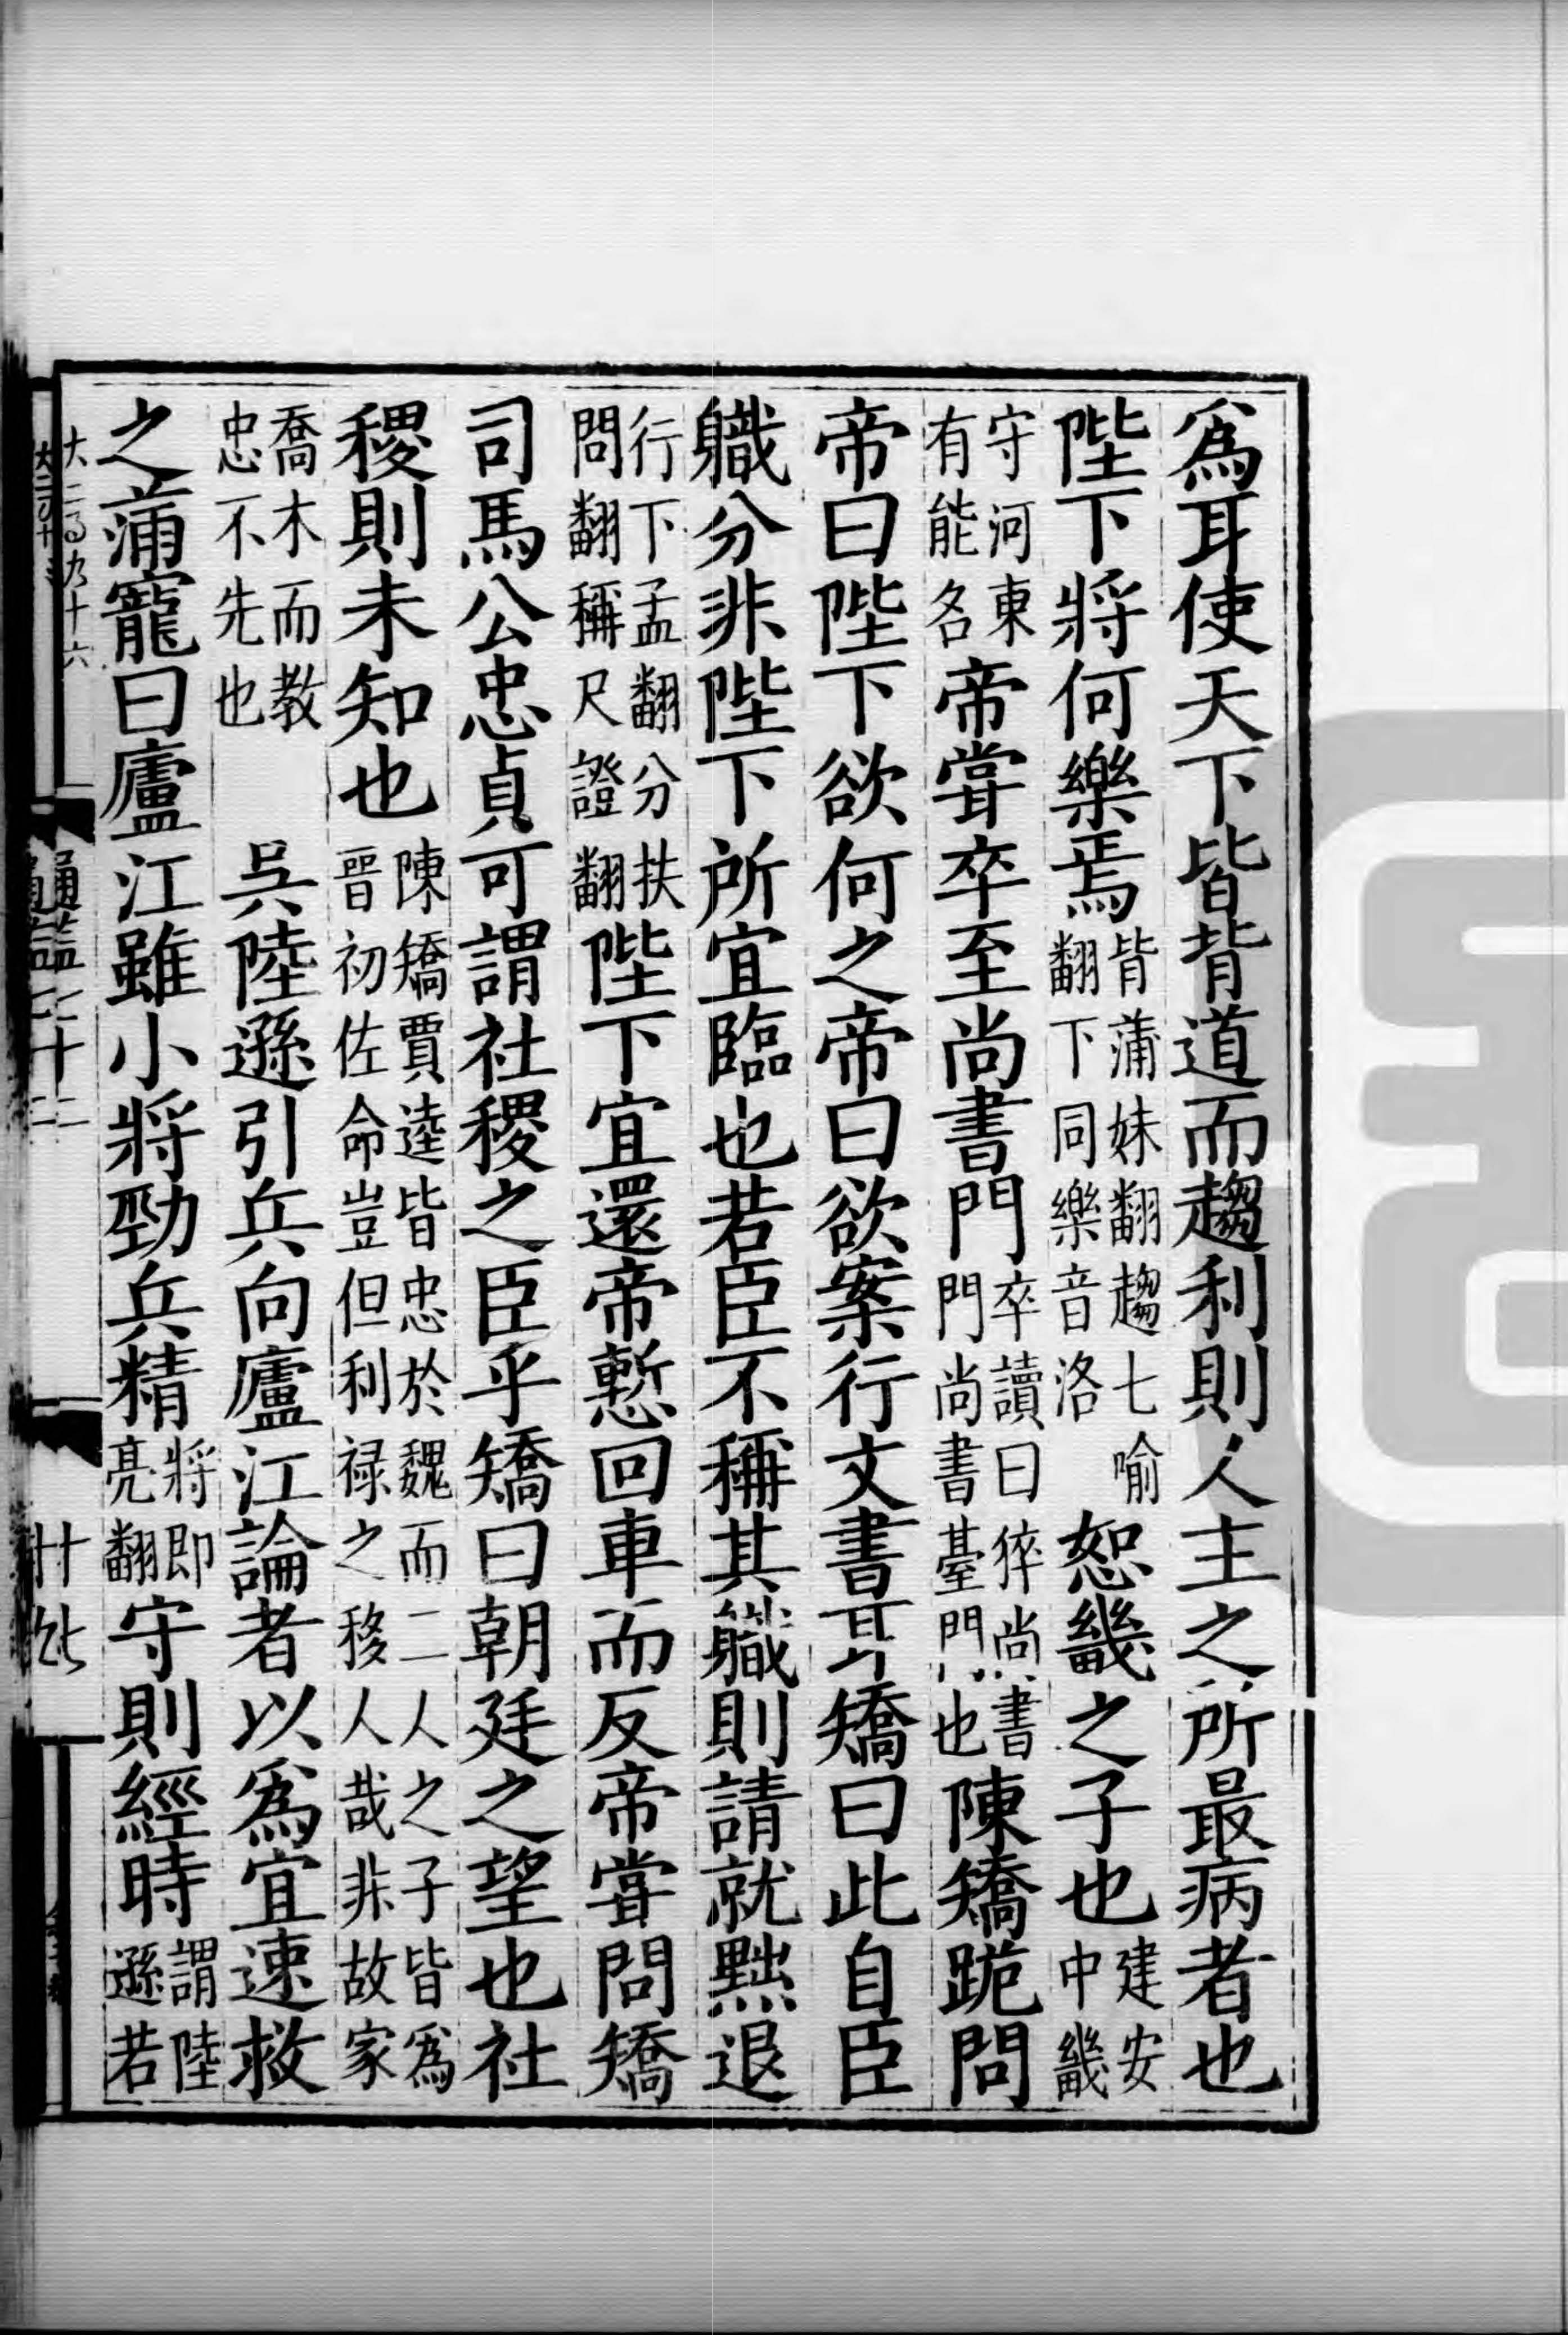 爲耳使天下皆背道而趨利則人主之所最病者也
陛下將何樂焉背蒲妹翻趨七喻翻下同樂音洛恕畿之子也建安中畿
守河東有能名帝嘗卒至尚書門卒讀曰猝尚書門尚書臺門也陳矯跪問
帝曰陛下欲何之帝曰欲案行文書耳矯曰此自臣
職分非陛下所宜臨也若臣不稱其職則請就黜退
行下孟翻分扶問翻稱尺證翻陛下宜還帝慙回車而反帝嘗問矯
司馬公忠貞可謂社稷之臣乎矯曰朝廷之望也社
稷則未知也陳矯賈逵皆忠於魏而二人之子皆爲晉初佐命豈但利祿之移人哉非故家
喬木而教忠不先也 吳陸遜引兵向廬江論者以爲宜速救
之蒲寵曰廬江雖小將勁兵精將即亮翻守則經時謂陸遜若
通鑑七十二